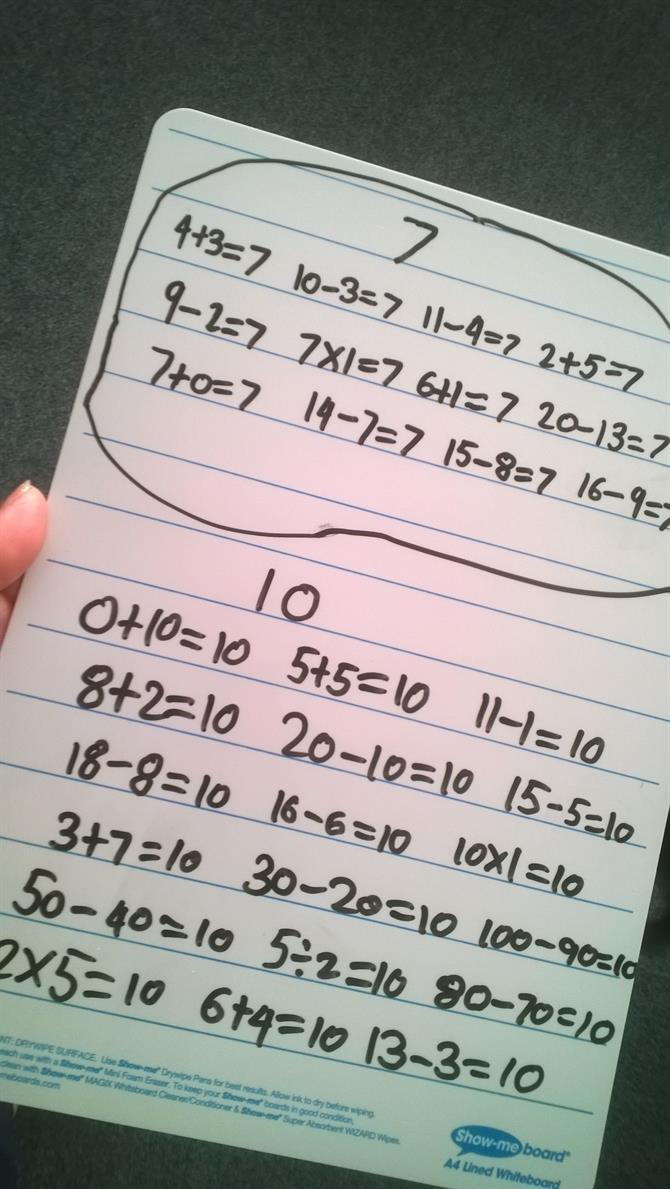 7
4+3=7 10-3=7 11-4=7 2+5=7
9-2=7 7x1=7 6+1=7 20-13=7
7+0=7 14-7=7 15-8=7 16-9=7
10
0+10=10 5+5=10 11-1=10
8+2=10 20-10=10 15-5=10
18-8=10 16-6=10 10x1=10
3+7=10 30-20=10 100-90=10
50-40=10 5÷2=10 80-70=10
2x5=10 6+4=10 13-3=10
NT: DRYWIPE SURFACE. Use Show-me® Drywipe Pens for best results. Allow ink to dry before wiping.
each use with a Show-me® Mini Foam Eraser. To keep your Show-me® boards in good condition,
clean with Show-me® MAGIX Whiteboard Cleaner/Conditioner & Show-me® Super Absorbent WIZARD Wipes.
meboards.com
Show-me board®
A4 Lined Whiteboard